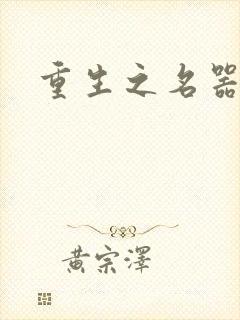 重生之名器
黄宗泽